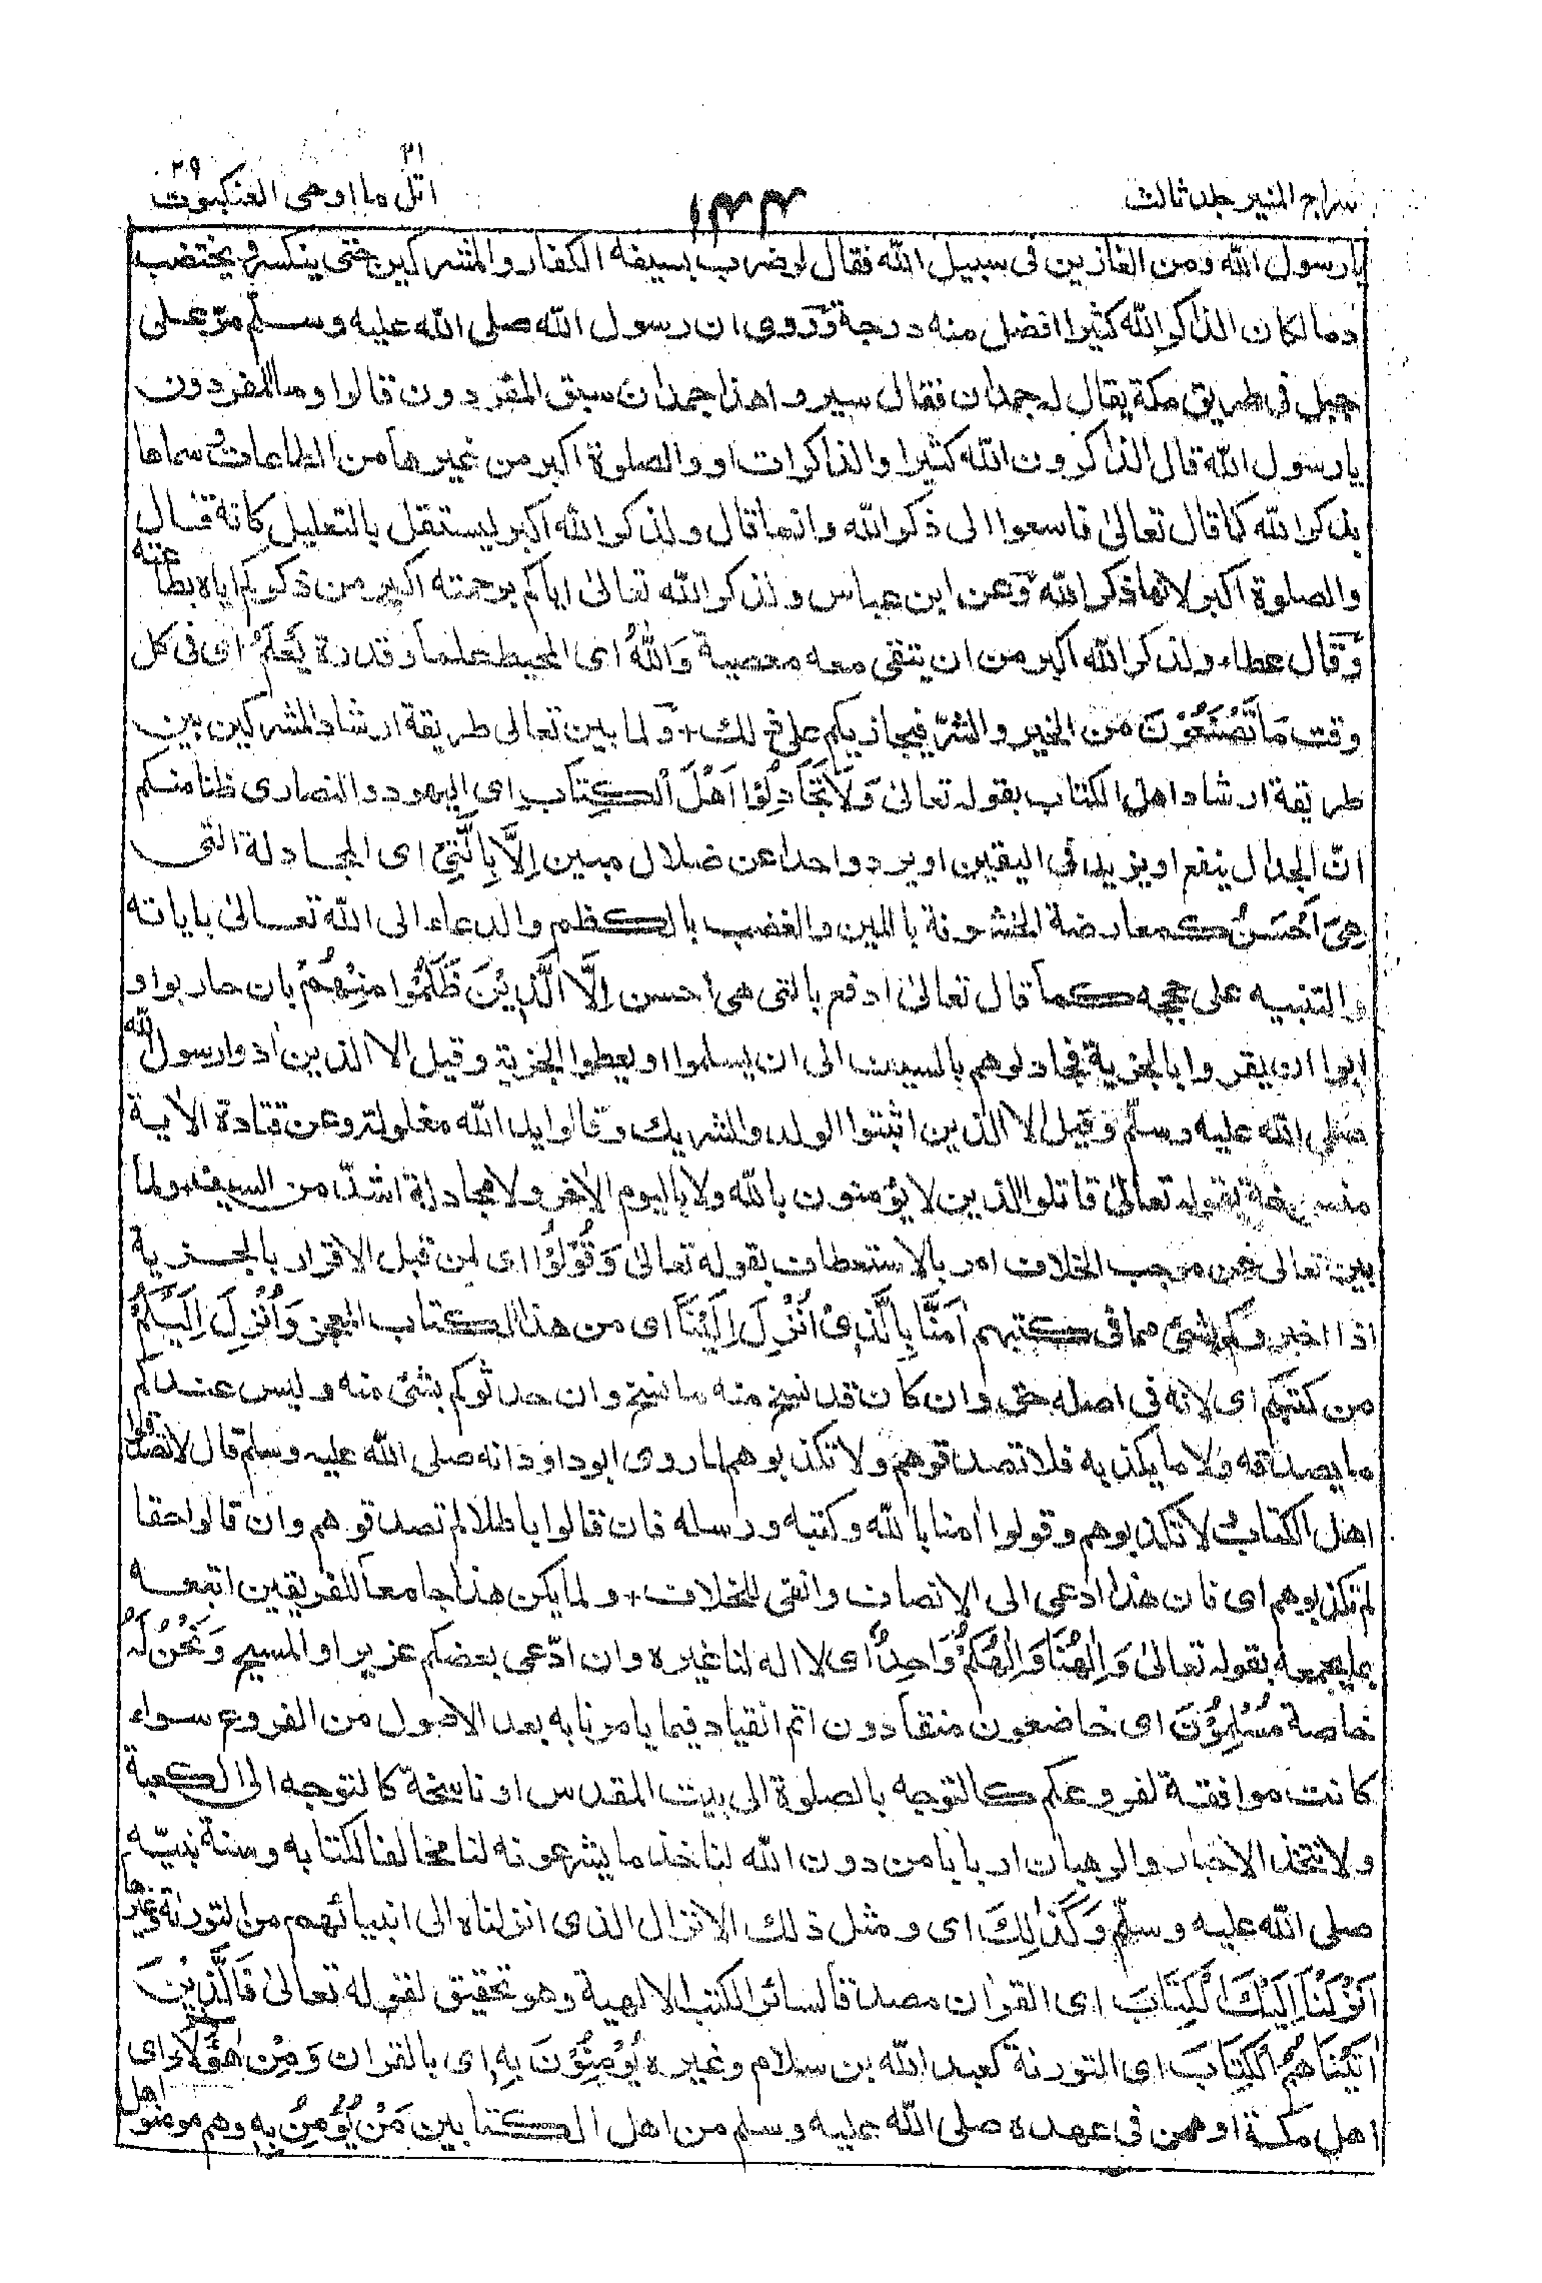 سراج المنير جلد ثالث
١٣٣
اتل ما اوحى ٢١ العنكبوت ٢٩
يا رسول الله ومن الغازين فى سبيل الله فقال لو ضرب بسيفه الكفار والمشركين حتى ينكسر ويختضب
دما لكان الذاكر الله كثيرا افضل منه درجة وروى ان رسول الله صلى الله عليه وسلم مرّ على
جبل فى طريق مكة يقال له جمدان فقال سيروا هذا جمدان سبق المفردون قالوا وما المفردون
يا رسول الله قال الذاكرون الله كثيرا والذاكرات او والصلوة اكبر من غيرها من الطاعات وسماها
بذكر الله كما قال تعالىٰ فاسعوا الى ذكر الله وانما قال ولذكر الله اكبر ليستقل بالتعليل كانه قال
والصلوة اكبر لانها ذكر الله وعن ابن عباس ولذكر الله تعالىٰ اياكم برحمته اكبر من ذكركم اياه بطاعته
وقال عطاء ولذكر الله اكبر من ان تبقى معه معصية وَاللهُ اى المحيط علما وقدرة يَعْلَمُ اى فى كل
وقت مَا تَصْنَعُوْنَ من الخير والشرّ فيجازيكم على ذلك+ ولما بين تعالى طريقة ارشاد المشركين بين
طريقة ارشاد اهل الكتاب بقوله تعالىٰ وَلَا تُجَادِلُوْا اَهْلَ الْكِتَابِ اى اليهود والنصارى ظنا منكم
انّ الجدال ينفع او يزيد فى اليقين او يرد واحدا عن ضلال مبين اِلَّا بِالَّتِىْ اى المجادلة التى
هِىَ اَحْسَنُ كمعارضة الخشونة باللين والغضب بالكظم والدعاء الى الله تعالىٰ باياته
والتنبيه على حججه كما قال تعالىٰ ادفع بالتى هى احسن اِلَّا الَّذِيْنَ ظَلَمُوْا مِنْهُمْ بان حاربوا و
ابوا ان يقروا بالجزية فجادلوهم بالسيف الى ان يسلموا او يعطوا الجزية وقيل الا الذين اذوا رسول الله
صلى الله عليه وسلم وقيل الا الذين اثبتوا الولد والشريك وقالوا يد الله مغلولة وعن قتادة الاية
منسوخة بقوله تعالىٰ قاتلوا الذين لا يؤمنون بالله ولا باليوم الاخر ولا مجادلة اشدّ من السيف ولما
بين تعالى عن موجب الخلاف امر بالاستعطاف بقوله تعالىٰ وَقُوْلُوْا اى لمن قبل الاقرار بالجزية
اذا اخبروكم بشئ مما فى كتبهم اٰمَنَّا بِالَّذِىْ اُنْزِلَ اِلَيْنَا اى من هذا الكتاب المعجز وَاُنْزِلَ اِلَيْكُمْ
من كتبكم اى لانه فى اصله حق وان كان قد نسخ منه ما نسخ وان حدثوكم بشئ منه وليس عندكم
ما يصدقه ولا ما يكذبه فلا تصدقوهم ولا تكذبوهم لما روى ابو داود انه صلى الله عليه وسلم قال لا تصدقوا
اهل الكتاب ولا تكذبوهم وقولوا امنا بالله وكتبه ورسله فان قالوا باطلا لم تصدقوهم وان قالوا حقا
لم تكذبوهم اى فان هذا ادعى الى الانصاف وانفى للخلاف+ ولما يكن هذا جامعا للفريقين اتبعه
بما يجمعه بقوله تعالىٰ وَاِلٰهُنَا وَاِلٰهُكُمْ وَاحِدٌ اى لا اله لنا غيره وان ادّعى بعضكم عزيرا والمسيح وَنَحْنُ لَهٗ
خاصة مُسْلِمُوْنَ اى خاضعون منقادون اتم انقياد فيما يامرنا به بعد الاصول من الفروع سواء
كانت موافقة لفروعكم كالتوجه بالصلوة الى بيت المقدس او ناسخة كالتوجه الى الكعبة
ولا نتخذ الاحبار والرهبان اربابا من دون الله لناخذ ما يشرعونه لنا مخالفا لكتابه وسنة نبيّه
صلى الله عليه وسلّم وَكَذٰلِكَ اى ومثل ذلك الانزال الذى انزلناه الى انبيائهم من التورٰىة وغيرها
اَنْزَلْنَا اِلَيْكَ الْكِتَابَ اى القراٰن مصدقا لسائر الكتب الالهية وهو تحقيق لقوله تعالىٰ فَالَّذِيْنَ
اٰتَيْنَاهُمُ الْكِتَابَ اى التورٰىة كعبد الله بن سلام وغيره يُؤْمِنُوْنَ بِهٖ اى بالقراٰن وَمِنْ هٰؤُلَاءِ اى
اهل مكة او ممن فى عهده صلى الله عليه وسلم من اهل الكتابين مَنْ يُؤْمِنُ بِهٖ وهم مومنوا اهل